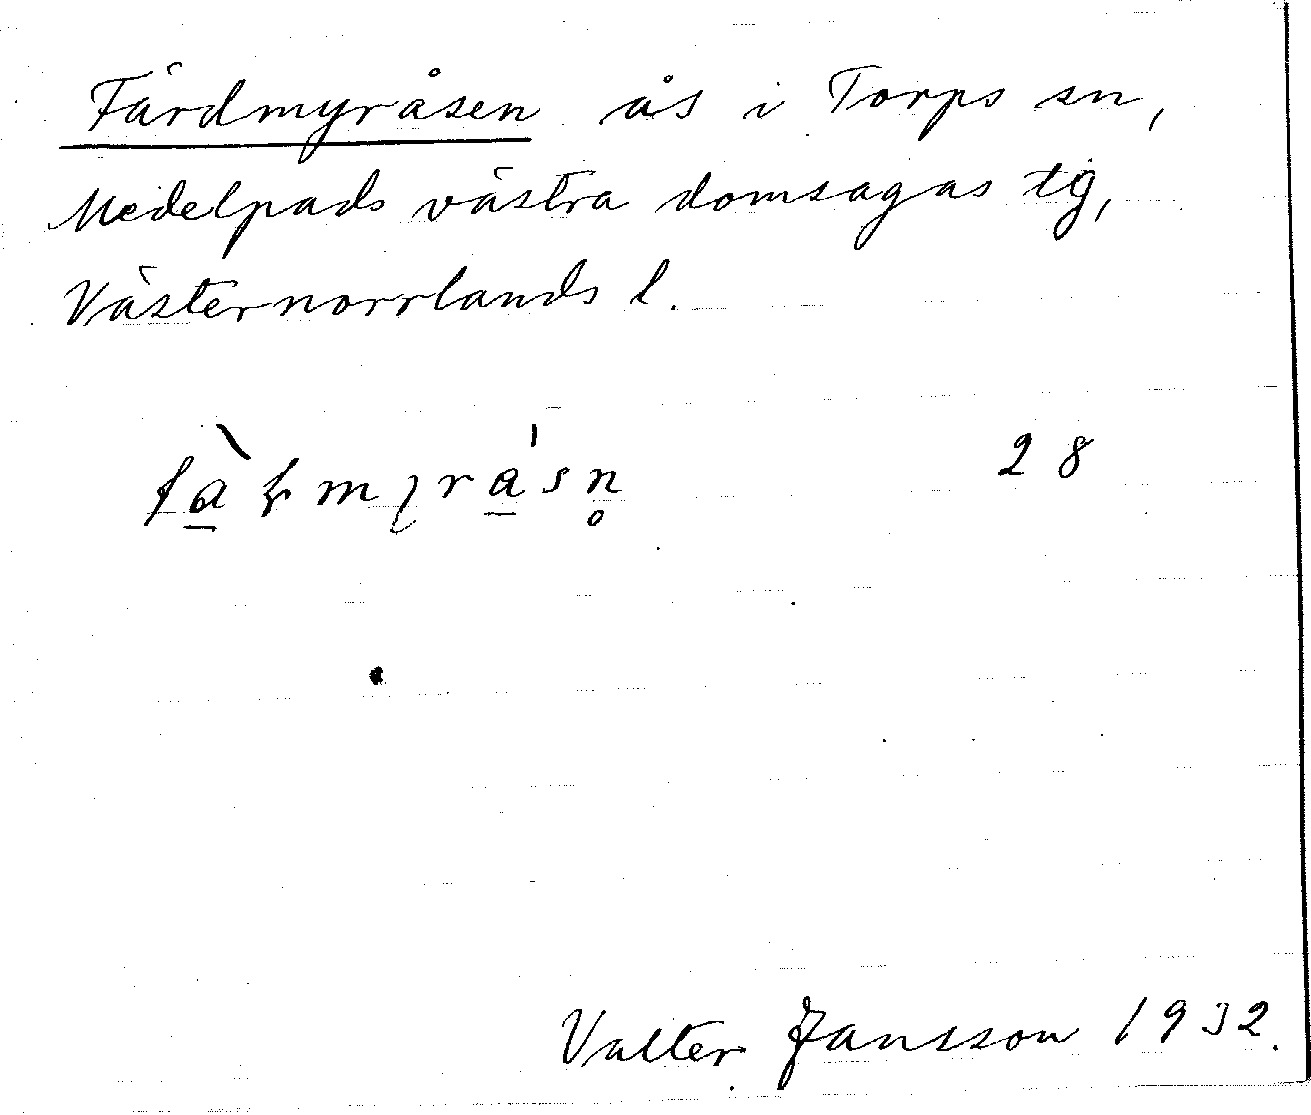 Färdmyråsen ås i Torps sn,
Medelpads västra domsagas tg,
Västernorrlands l.
28
Valter Jansson 1932.